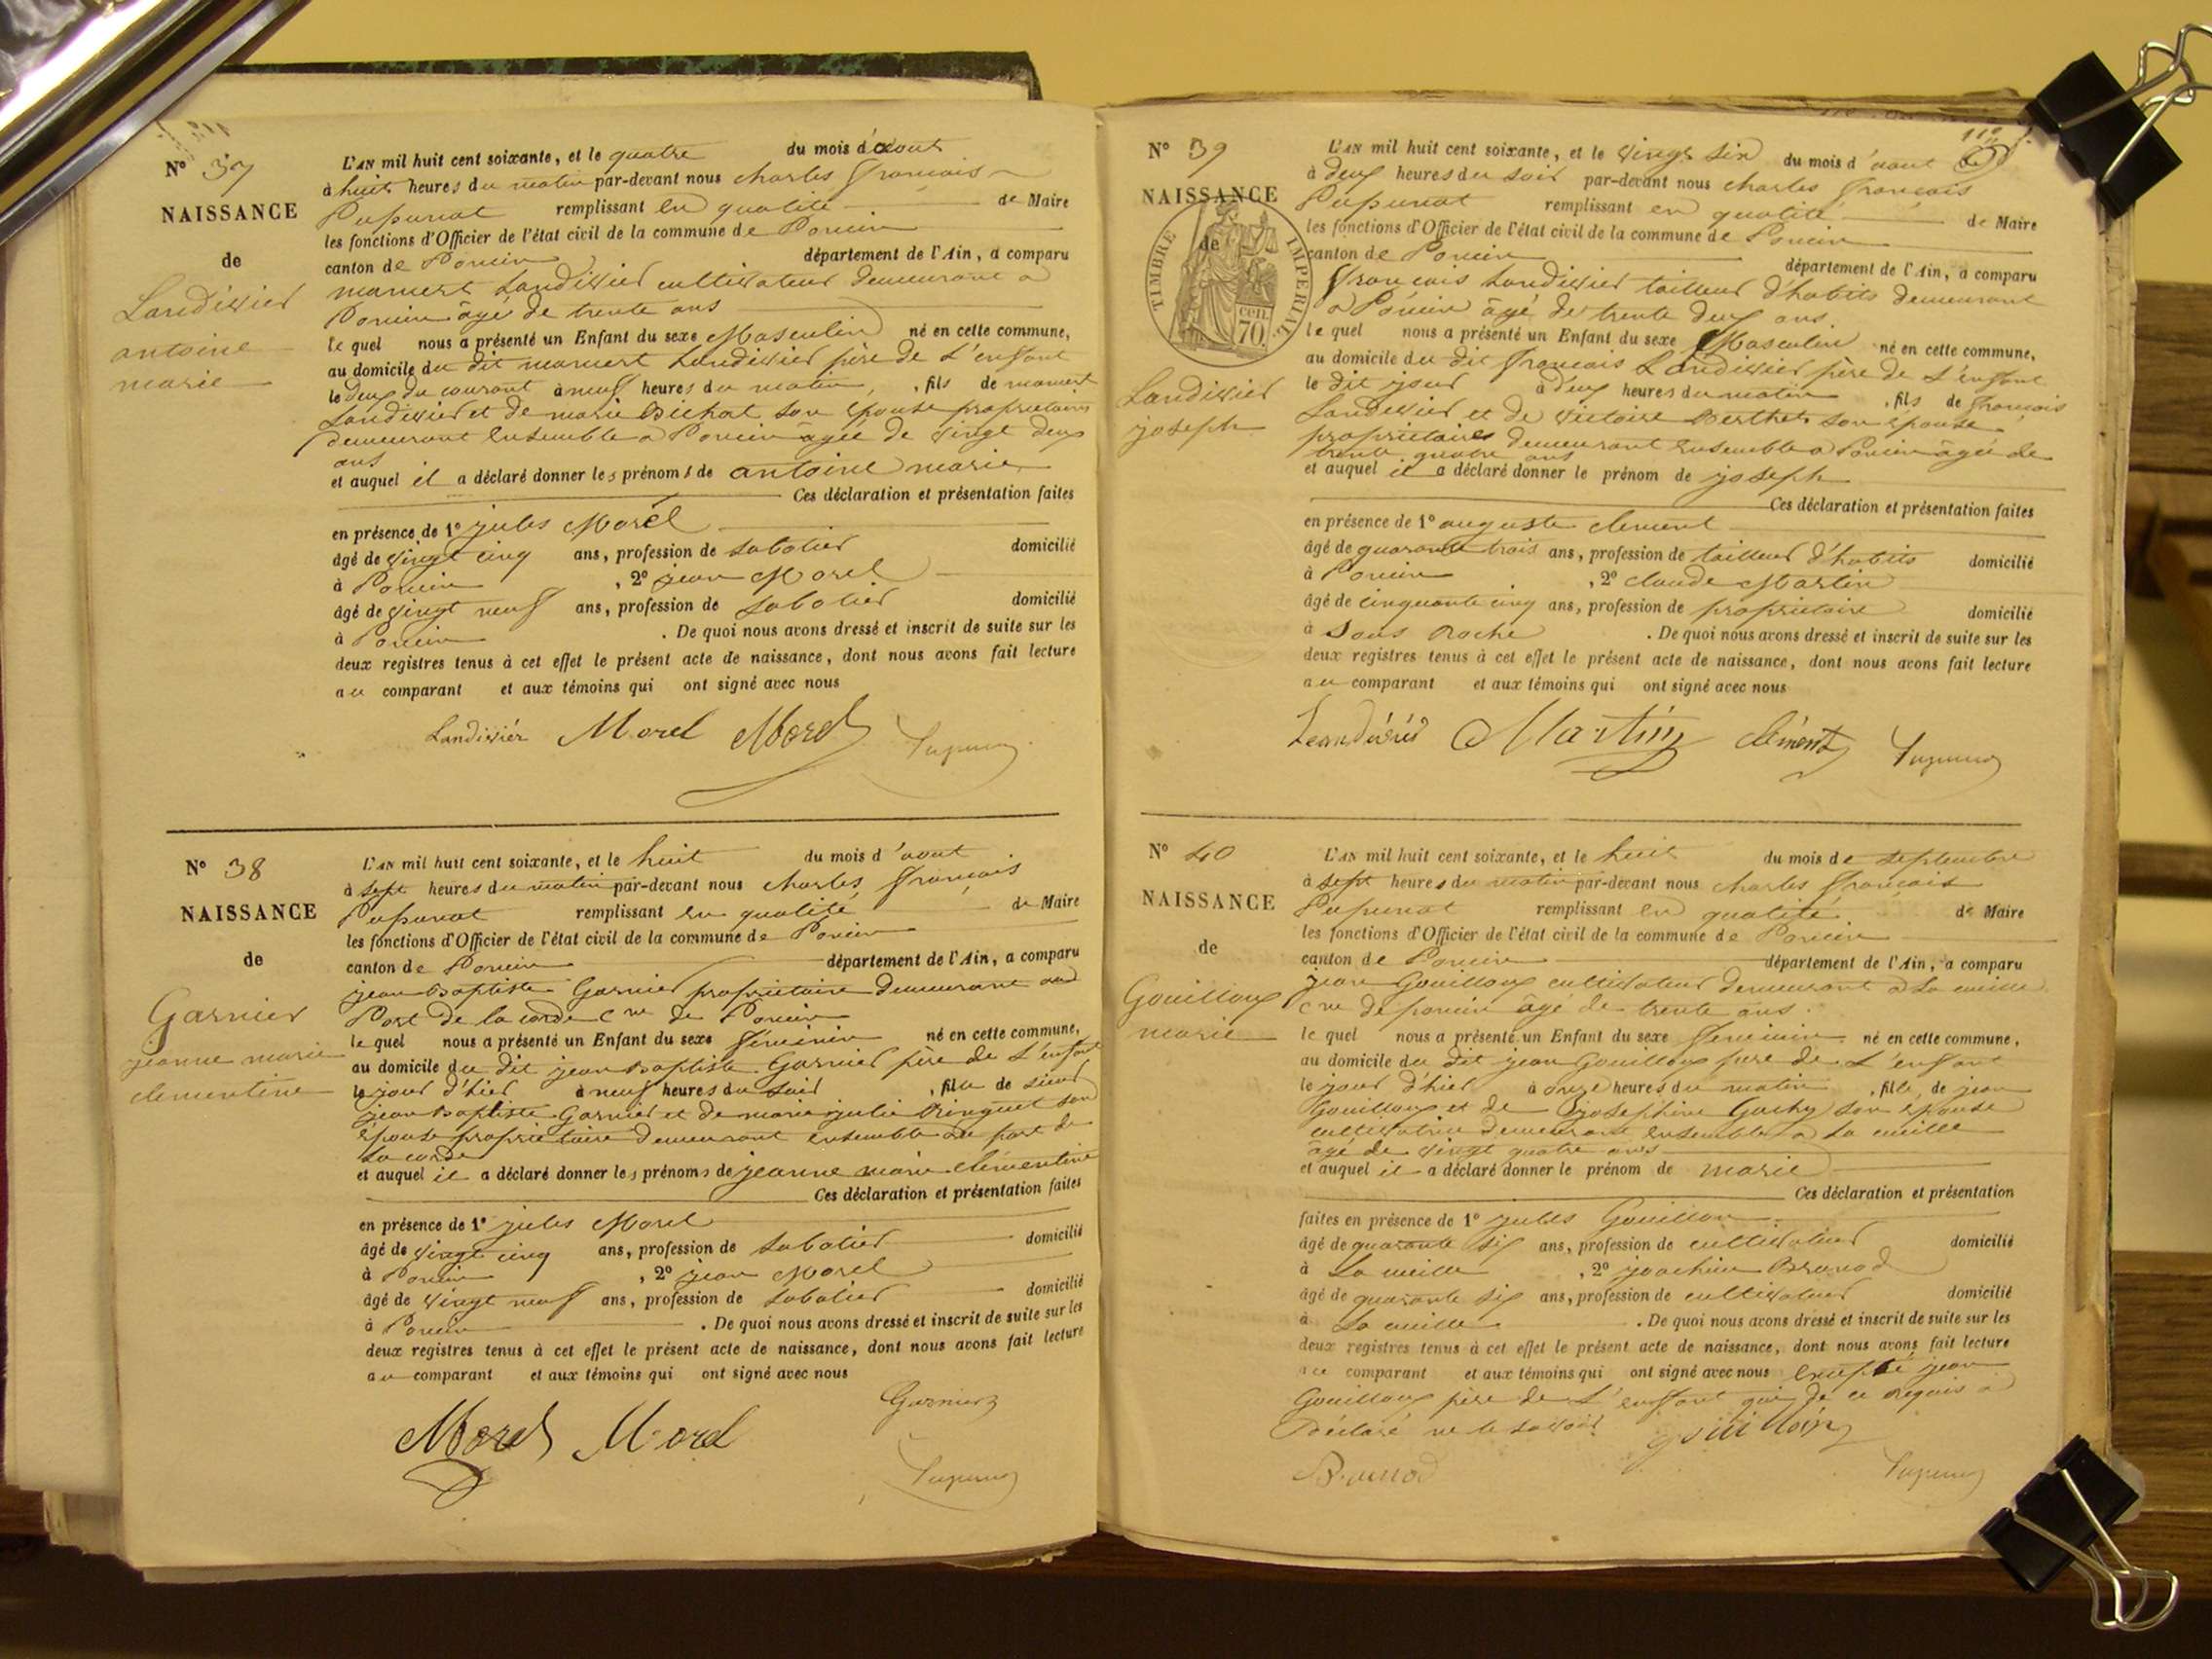 N° 37
NAISSANCE
de
Landivier
antoine
marie
L'AN mil huit cent soixante, et le quatre du mois d'aout
à huit heures du matin par-devant nous charles francois
Papunat remplissant en qualité de Maire
les fonctions d'Officier de l'état civil de la commune de Poncin
canton de Poncin département de l'Ain, a comparu
mamert Landivier cultivateur demeurant a
Poncin âgé de trente ans
le quel nous a présenté un Enfant du sexe Masculin né en cette commune,
au domicile du dit mamert Landivier père de L'enfant
le deux du courant à neuf heures du matin, fils de mamert
Landivier et de marie Bichat son épouse propriétaires
demeurant ensemble a Poncin âgée de vingt deux
ans
et auquel il a déclaré donner les prénoms de antoine marie
Ces déclaration et présentation faites
en présence de 1° jules Morel
âgé de vingt cinq ans, profession de sabotier domicilié
à Poncin , 2° jean Morel
âgé de vingt neuf ans, profession de sabotier domicilié
à Poncin . De quoi nous avons dressé et inscrit de suite sur les
deux registres tenus à cet effet le présent acte de naissance, dont nous avons fait lecture
au comparant et aux témoins qui ont signé avec nous
Landivier Morel Morel Papunat
N° 38
NAISSANCE
de
Garnier
jeanne marie
clementine
L'AN mil huit cent soixante, et le huit du mois d'aout
à sept heures du matin par-devant nous charles francois
Papunat remplissant en qualité de Maire
les fonctions d'Officier de l'état civil de la commune de Poncin
canton de Poncin département de l'Ain, a comparu
jean Baptiste Garnier propriétaire demeurant au
Port de la corde cne de Poncin
le quel nous a présenté un Enfant du sexe féminin né en cette commune,
au domicile du dit jean Baptiste Garnier père de L'enfant
le jour d'hier à neuf heures du soir , fille de sieur
jean Baptiste Garnier et de marie julie Ringuet son
épouse propriétaire demeurant ensemble au port de
La corde
et auquel il a déclaré donner les prénoms de jeanne marie clémentine
Ces déclaration et présentation faites
en présence de 1° jules Morel
âgé de vingt cinq ans, profession de sabotier domicilié
à Poncin , 2° jean Morel
âgé de vingt neuf ans, profession de sabotier domicilié
à Poncin . De quoi nous avons dressé et inscrit de suite sur les
deux registres tenus à cet effet le présent acte de naissance, dont nous avons fait lecture
au comparant et aux témoins qui ont signé avec nous
Garnier
Morel Morel
Papunat
N° 39
NAISSANCE
de
TIMBRE IMPERIAL
CEN.
70.
Landivier
joseph
L'AN mil huit cent soixante, et le vingt six du mois d'aout
à deux heures du soir par-devant nous charles francois
Papunat remplissant en qualité de Maire
les fonctions d'Officier de l'état civil de la commune de Poncin
canton de Poncin département de l'Ain, a comparu
francois Landivier tailleur d'habits demeurant
a Poncin âgé de trente deux ans
le quel nous a présenté un Enfant du sexe Masculin né en cette commune,
au domicile du dit francois Landivier père de L'enfant
le dit jour à deux heures du matin , fils de francois
Landivier et de victoire Berthet son épouse
propriétaires demeurant ensemble a Poncin âgée de
trente quatre ans
et auquel il a déclaré donner le prénom de joseph
Ces déclaration et présentation faites
en présence de 1° auguste clement
âgé de quarante trois ans, profession de tailleur d'habits domicilié
à Poncin , 2° claude Martin
âgé de cinquante cinq ans, profession de propriétaire domicilié
à Sous Roche . De quoi nous avons dressé et inscrit de suite sur les
deux registres tenus à cet effet le présent acte de naissance, dont nous avons fait lecture
au comparant et aux témoins qui ont signé avec nous
Martin clément Papunat
N° 40
NAISSANCE
de
Gouilloux
marie
L'AN mil huit cent soixante, et le huit du mois de septembre
à sept heures du matin par-devant nous charles francois
Papunat remplissant en qualité de Maire
les fonctions d'Officier de l'état civil de la commune de Poncin
canton de Poncin département de l'Ain, a comparu
jean Gouilloux cultivateur demeurant a La cueille
cne de poncin âgé de trente ans
le quel nous a présenté un Enfant du sexe féminin né en cette commune,
au domicile du dit jean Gouilloux père de L'enfant
le jour d'hier à onze heures du matin , fille de jean
Gouilloux et de josephine Gachy son épouse
cultivatrice demeurant ensemble a La cueille
âgé de vingt quatre ans
et auquel il a déclaré donner le prénom de marie
Ces déclaration et présentation
faites en présence de 1° jules Gouilloux
âgé de quarante six ans, profession de cultivateur domicilié
à La cueille , 2° joachim Brunod
âgé de quarante six ans, profession de cultivateur domicilié
à La cueille . De quoi nous avons dressé et inscrit de suite sur les
deux registres tenus à cet effet le présent acte de naissance, dont nous avons fait lecture
au comparant et aux témoins qui ont signé avec nous excepté jean
Gouilloux père de L'enfant qui de ce requis a
Déclaré ne le savoir
Brunod Papunat